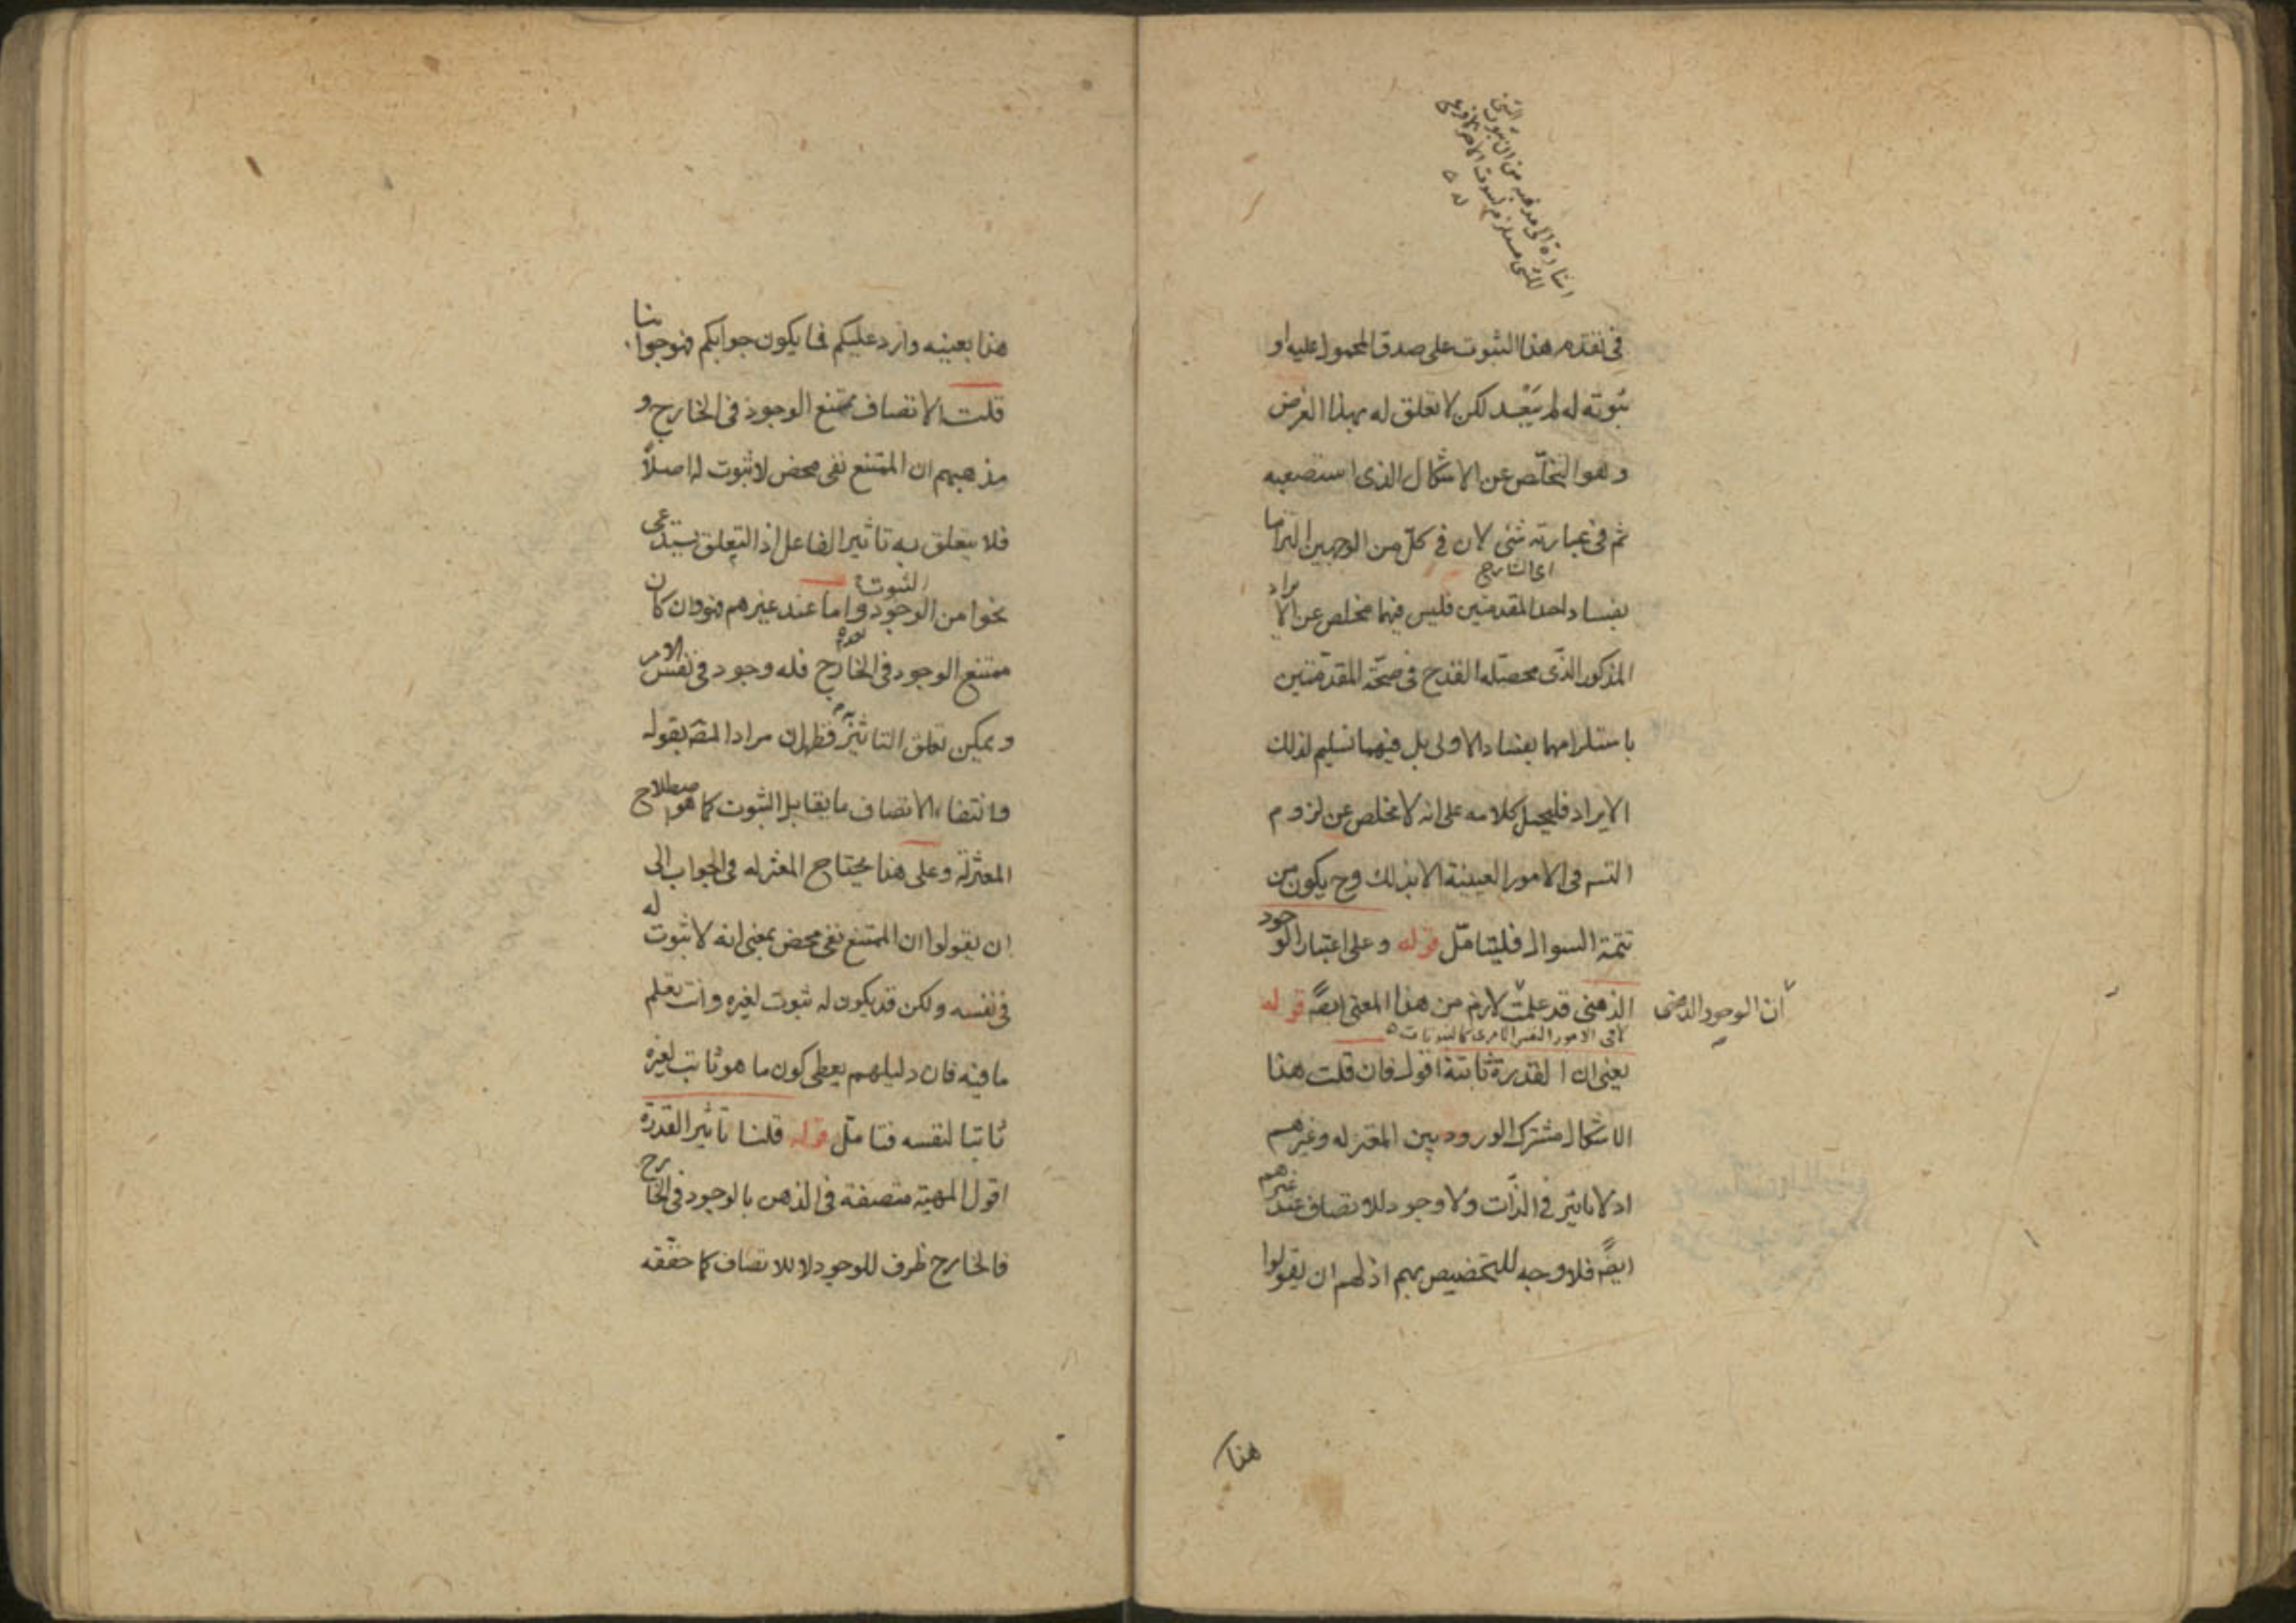 اشارة الى مذهبه من ان ثبوت الشئ
للشئ مستلزم لثبوت الاخر
فى تقدم هذا الثبوت على صدق المحمول عليه او
ثبوته له لم يَبْعُد لكن لا تعلق له بهذا الغرض
وهو التخلّص عن الاشكال الذى استصعبه
ثم فى عبارته شئ لان فى كلّ من الوجهين التزاما
اى الشارح
بفساد احد المقدمتين فليس فيهما مخلص عن الايراد
المذكور الذى محصّله القدح فى صحّة المقدّمتين
باستلزامهما بفساد الاولى بل فيهما تسليم لذلك
الايراد فليحمل كلامه على انه لا مخلص عن لزوم
التسم فى الامور العينية الا بذلك وح يكون من
تتمة السوال فليتامّل قوله وعلى اعتبار الوجود
الذهنى قد علمت لازم من هذا المعنى ايضًا قوله
ان الوجود الذهنى
لا فى الامور النفس الامرى كالثبوتات
يعنى ان القدرة ثابتة اقول فان قلت هذا
الاشكال مشترك الورود بين المعتزله وغيرهم
اذ لا تاثير فى الذّات ولا وجود للاتصاف عند غيرهم
ايضًا فلا وجه للتخصيص بهم اذ لهم ان يقولوا
هذا
هذا بعينه وارد عليكم فما يكون جوابكم فهو جوابنا
قلت الاتصاف ممتنع الوجود فى الخارج و
مذهبهم ان الممتنع نفى محض لا ثبوت له اصلاً
فلا يتعلق به تاثير الفاعل اذ التعلق يستدعى
الثبوت
نحوا من الوجود واما عند غيرهم فهو وان كان
ممتنع الوجود فى الخارج فله وجود فى نفس الامر
ويمكن تعلق التاثير به فظهر ان مراد المصـ بقوله
وانتفاء الاتصاف ما يقابل الثبوت كما هو اصطلاح
المعتزلة وعلى هذا يحتاج المعتزله فى الجواب الى
ان يقولوا ان الممتنع نفى محض بمعنى انه لا ثبوت له
فى نفسه ولكن قد يكون له ثبوت لغيره وانت تعلم
ما فيه فان دليلهم يعطى كون ما هو ثابت لغيره
ثابتا لنفسه فتامّل قوله قلنا تاثير القدرة
اقول المهية متصفة فى الذهن بالوجود فى الخارج
فالخارج ظرف للوجود لا للاتصاف كما حققه